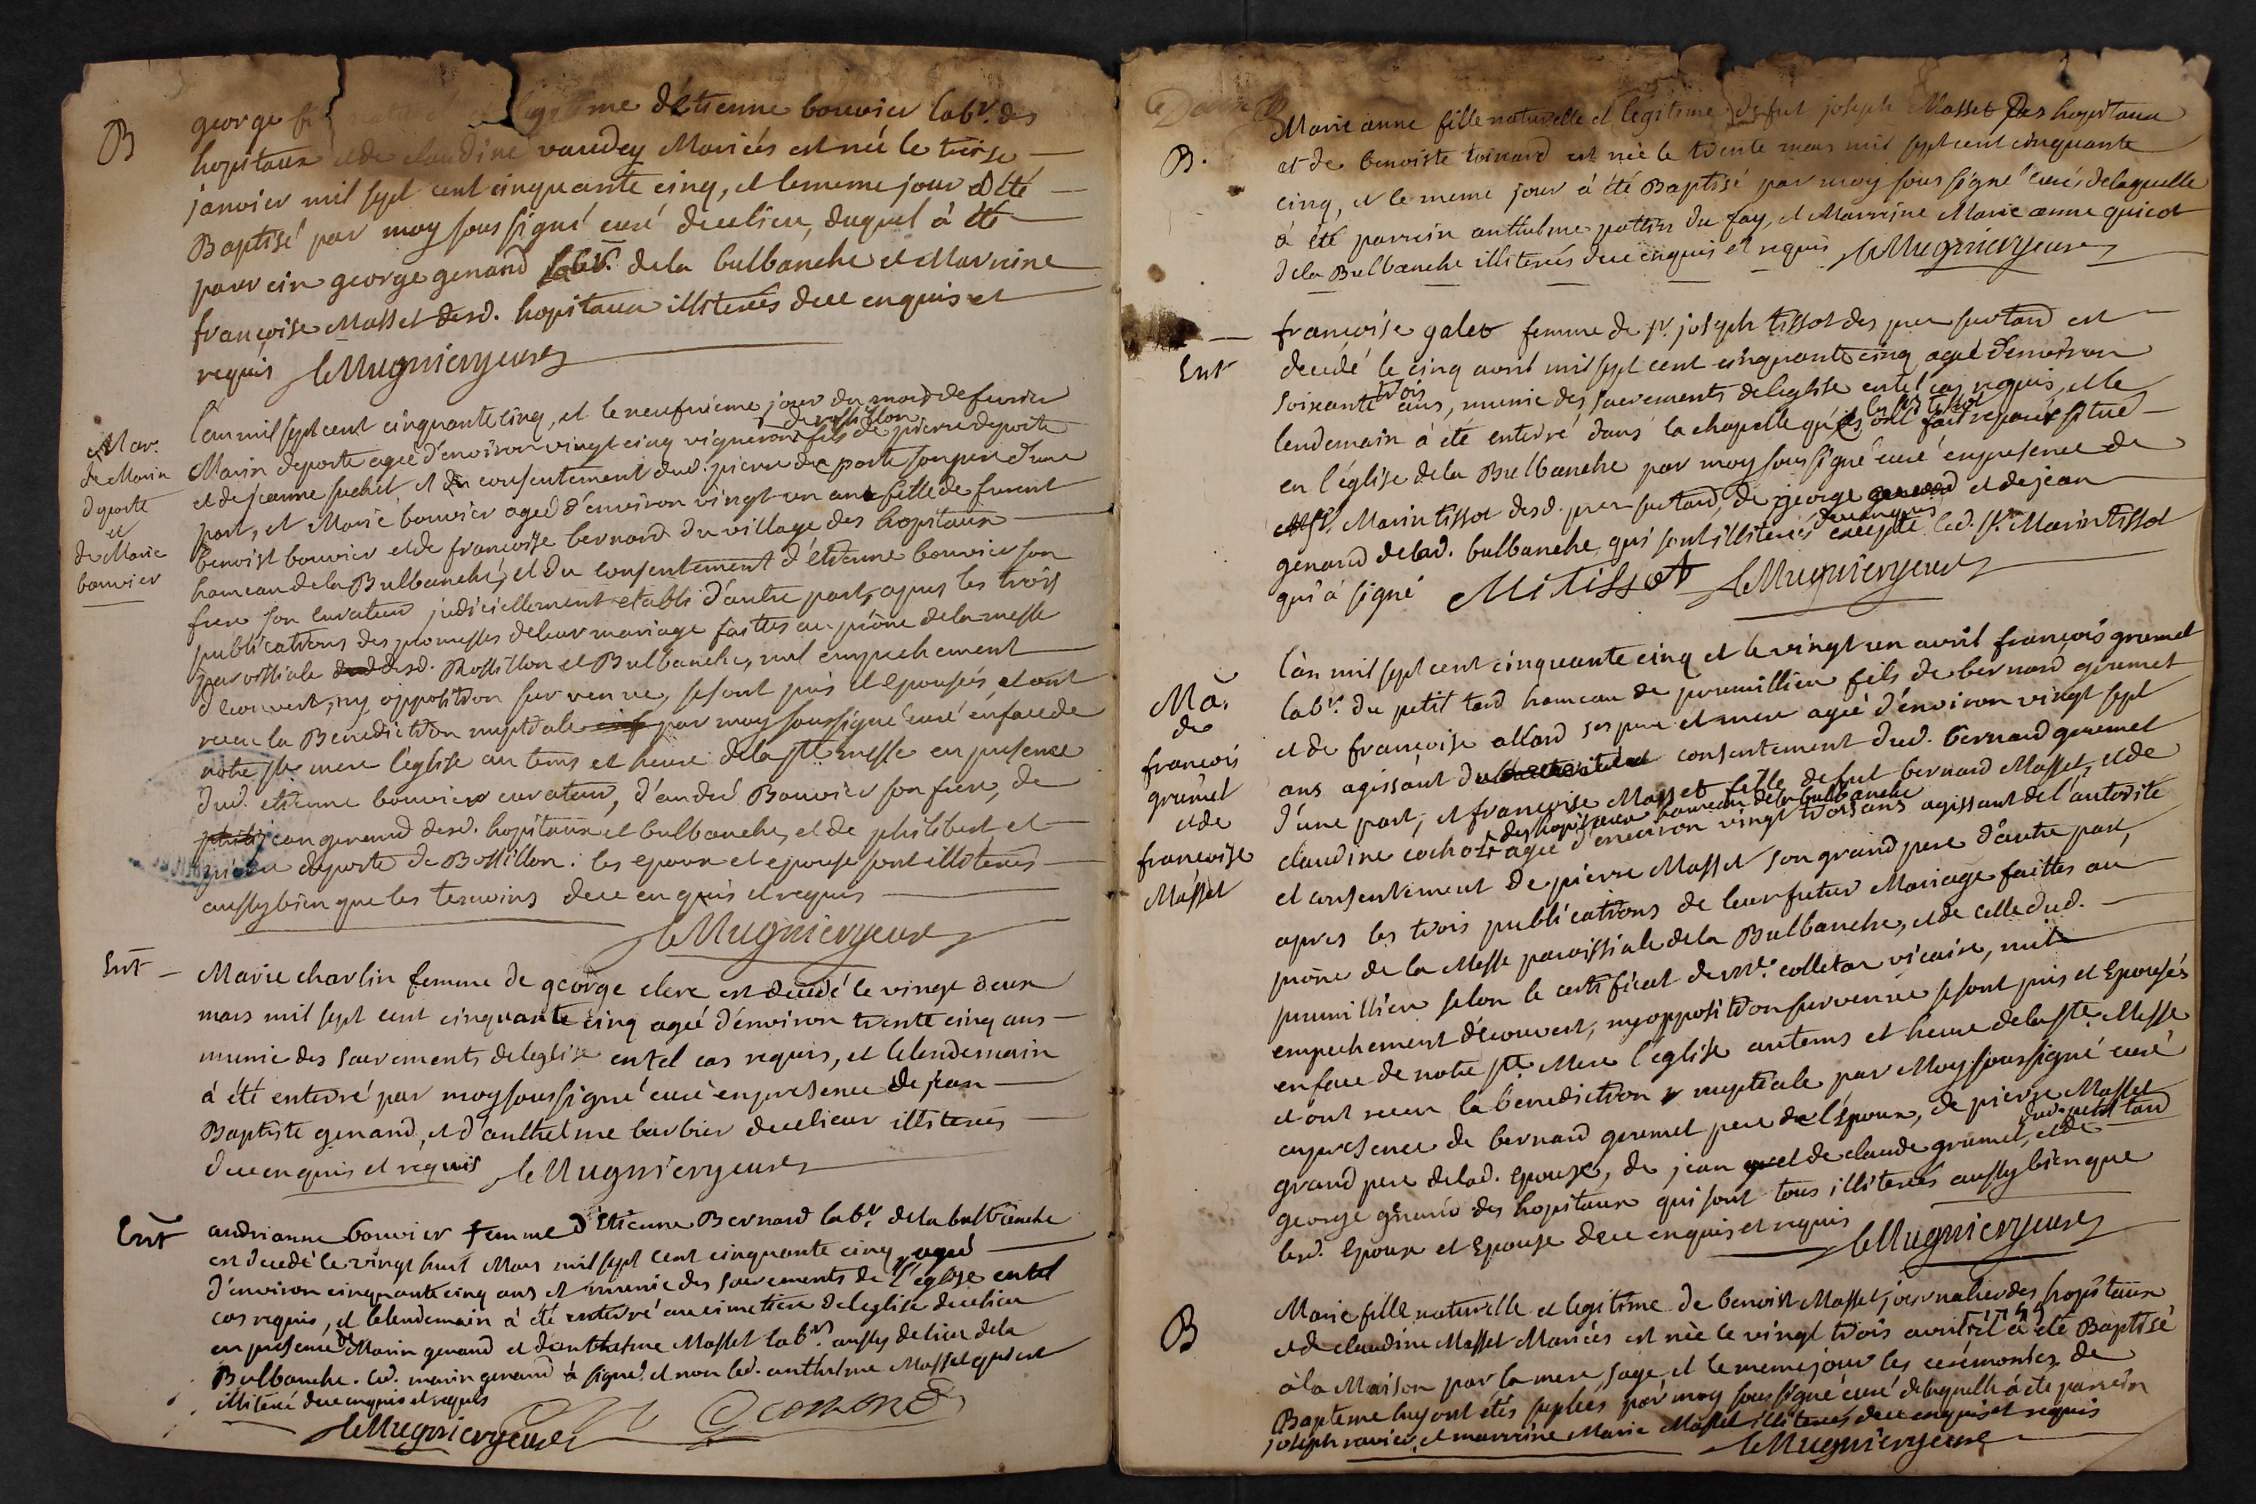 B
george fi naturel et legitime d'Etienne bouvier labr. des
hopitaux et de claudine vaudey Mariés est né le treise
janvier mil sept cent cinquante cinq, et le meme jour a été
Baptisé par moy soussigné curé du lieu, duquel à été
parrein george genand labr. de la bulbanche et Marreine
françoise Masset desd. hopitaux illiterés de ce enquis et
requis leMugnier curé
Mar.
de Marin
deporte
et
de Marie
bouvier
l'an mil sept cent cinquante cinq, et le neufvieme jour du mois de fevrier
de rossillon
Marin deporte agé d'environ vingt cinq vigneron fils de pierre deporte
et de jeanne suchet, et du consentement dud. pierre deporte son pere d'une
part, et Marie bouvier ageé d'environ vingt un ans fille de furent
benoist bouvier et de françoise bernard du village des hopitaux
hameau de la Bulbanche, et du consentement d'étienne bouvier son
frere son curateur judiciellement etabli d'autre part, apres les trois
publications des promesses de leur mariage faittes au prône de la messe
paroissiale desd. Rossillon et Bulbanche, nul empechement
decouvert, ny opposition survenue, se sont pris et epousés, et ont
receu la Benediction nuptiale par moy soussigné curé en face de
notre ste mere l'eglise au tems et heure de la ste messe en presence
dud. etienne bouvier curateur, d'andré Bouvier son frere, de
jean genand desd. hopitaux et bulbanche, et de philibert et
deporte de Rossillon: les epoux et epouse sont illiterés
aussy bien que les temoins de ce enquis et requis
leMugnier curé
Ent
Marie charlin femme de george clerc est decedé le vingt deux
mars mil sept cent cinquante cinq ageé d'environ trente cinq ans
munie des sacrements de leglise en tel cas requis, et le lendemain
à été enterré par moy soussigné curé en presence de jean
Baptiste genand, et d'anthelme barbier du lieu illiterés
de ce enquis et requis leMugnier curé
Ent
andrianne bouvier femme d'Etienne Bernard labr. de la bulbanche
est decedé le vingt huit Mars mil sept cent cinquante cinq, ageé
d'environ cinquante cinq ans et munie des sacrements de l'eglise en tel
cas requis, et le lendemain à été enterré au cimetiere de leglise du lieu
en presence de Marin genand et d'anthelme Masset labrs. aussy du lieu de la
Bulbanche. led. marin genand à signé et non led. anthelme Masset qui est
illiteré de ce enquis et requis
leMugnier curé Genand
B.
Marie anne fille naturelle et legitime de fut joseph Masset des hopitaux
et de benoiste toinard est née le trente mars mil sept cent cinquante
cinq, et le meme jour à été Baptisé par moy soussigné curé de laquelle
à été parrein anthelme pattin du fay, et Marreine Marie anne quicot
de la Bulbanche illiterés de ce enquis et requis leMugnier curé
Ent
françoise galet femme de sr. joseph tissot des pres sur tard est
decedé le cinq avril mil sept cent cinquante cinq ageé d'environ
soixante trois ans, munie des sacrements de leglise en tel cas requis, et le
lendemain à été enterré dans la chapelle qu'ils ont fait reparer situé
les srs tissot
en l'église de la Bulbanche par moy soussigné curé en presence de
sr. Marin tissot desd. pres sur tard, de george genand et de jean
genand de lad. bulbanche qui sont illiterés de ce enquis excepté led. sr. Marin tissot
qui à signé M. tissot leMugnier curé
Ma.
de
françois
grumet
et de
françoise
Masset
l'an mil sept cent cinquante cinq et le vingt un avril françois grumet
labr. du petit tard hameau de premillieu fils de bernard grumet
et de françoise allard ses pere et mere ageé d'environ vingt sept
ans agissant du consentement dud. bernard grumet
d'une part, et françoise Masset fille de fut bernard Masset, et de
des hopitaux hameau de la bulbanche
claudine cochot ageé d'environ vingt trois ans agissant de l'autorité
et consentement de pierre Masset son grand pere d'autre part,
apres les trois publications de leur futur Mariage faittes au
prône de la Messe paroissiale de la Bulbanche, et de celle dud.
premillieu selon le certificat de mre. colletaz vicaire, nul
empechement decouvert, ny opposition survenue se sont pris et Epousés
en face de notre ste Mere l'église au tems et heure de la ste Messe
et ont receu la benediction nuptiale par Moy soussigné curé
en presence de bernard grumet pere de l'époux, de pierre Masset
grand pere de lad. epouse, de jean et de claude grumet dud. petit tard, et de
george genand des hopitaux qui sont tous illiterés aussy bien que
lesd. Epoux et Epouse de ce enquis et requis leMugnier curé
B
Marie fille naturelle et legitime de benoist Masset journalier des hopitaux
et de claudine Masset Mariés est née le vingt trois avril 1755 et à été Baptisé
à la Maison par la mere sage, et le meme jour les cérémonies de
Bapteme luy ont étés supleés par moy soussigné curé de laquelle à été parrein
joseph ravier, et marreine Marie Masset illiterés de ce enquis et requis
leMugnier curé